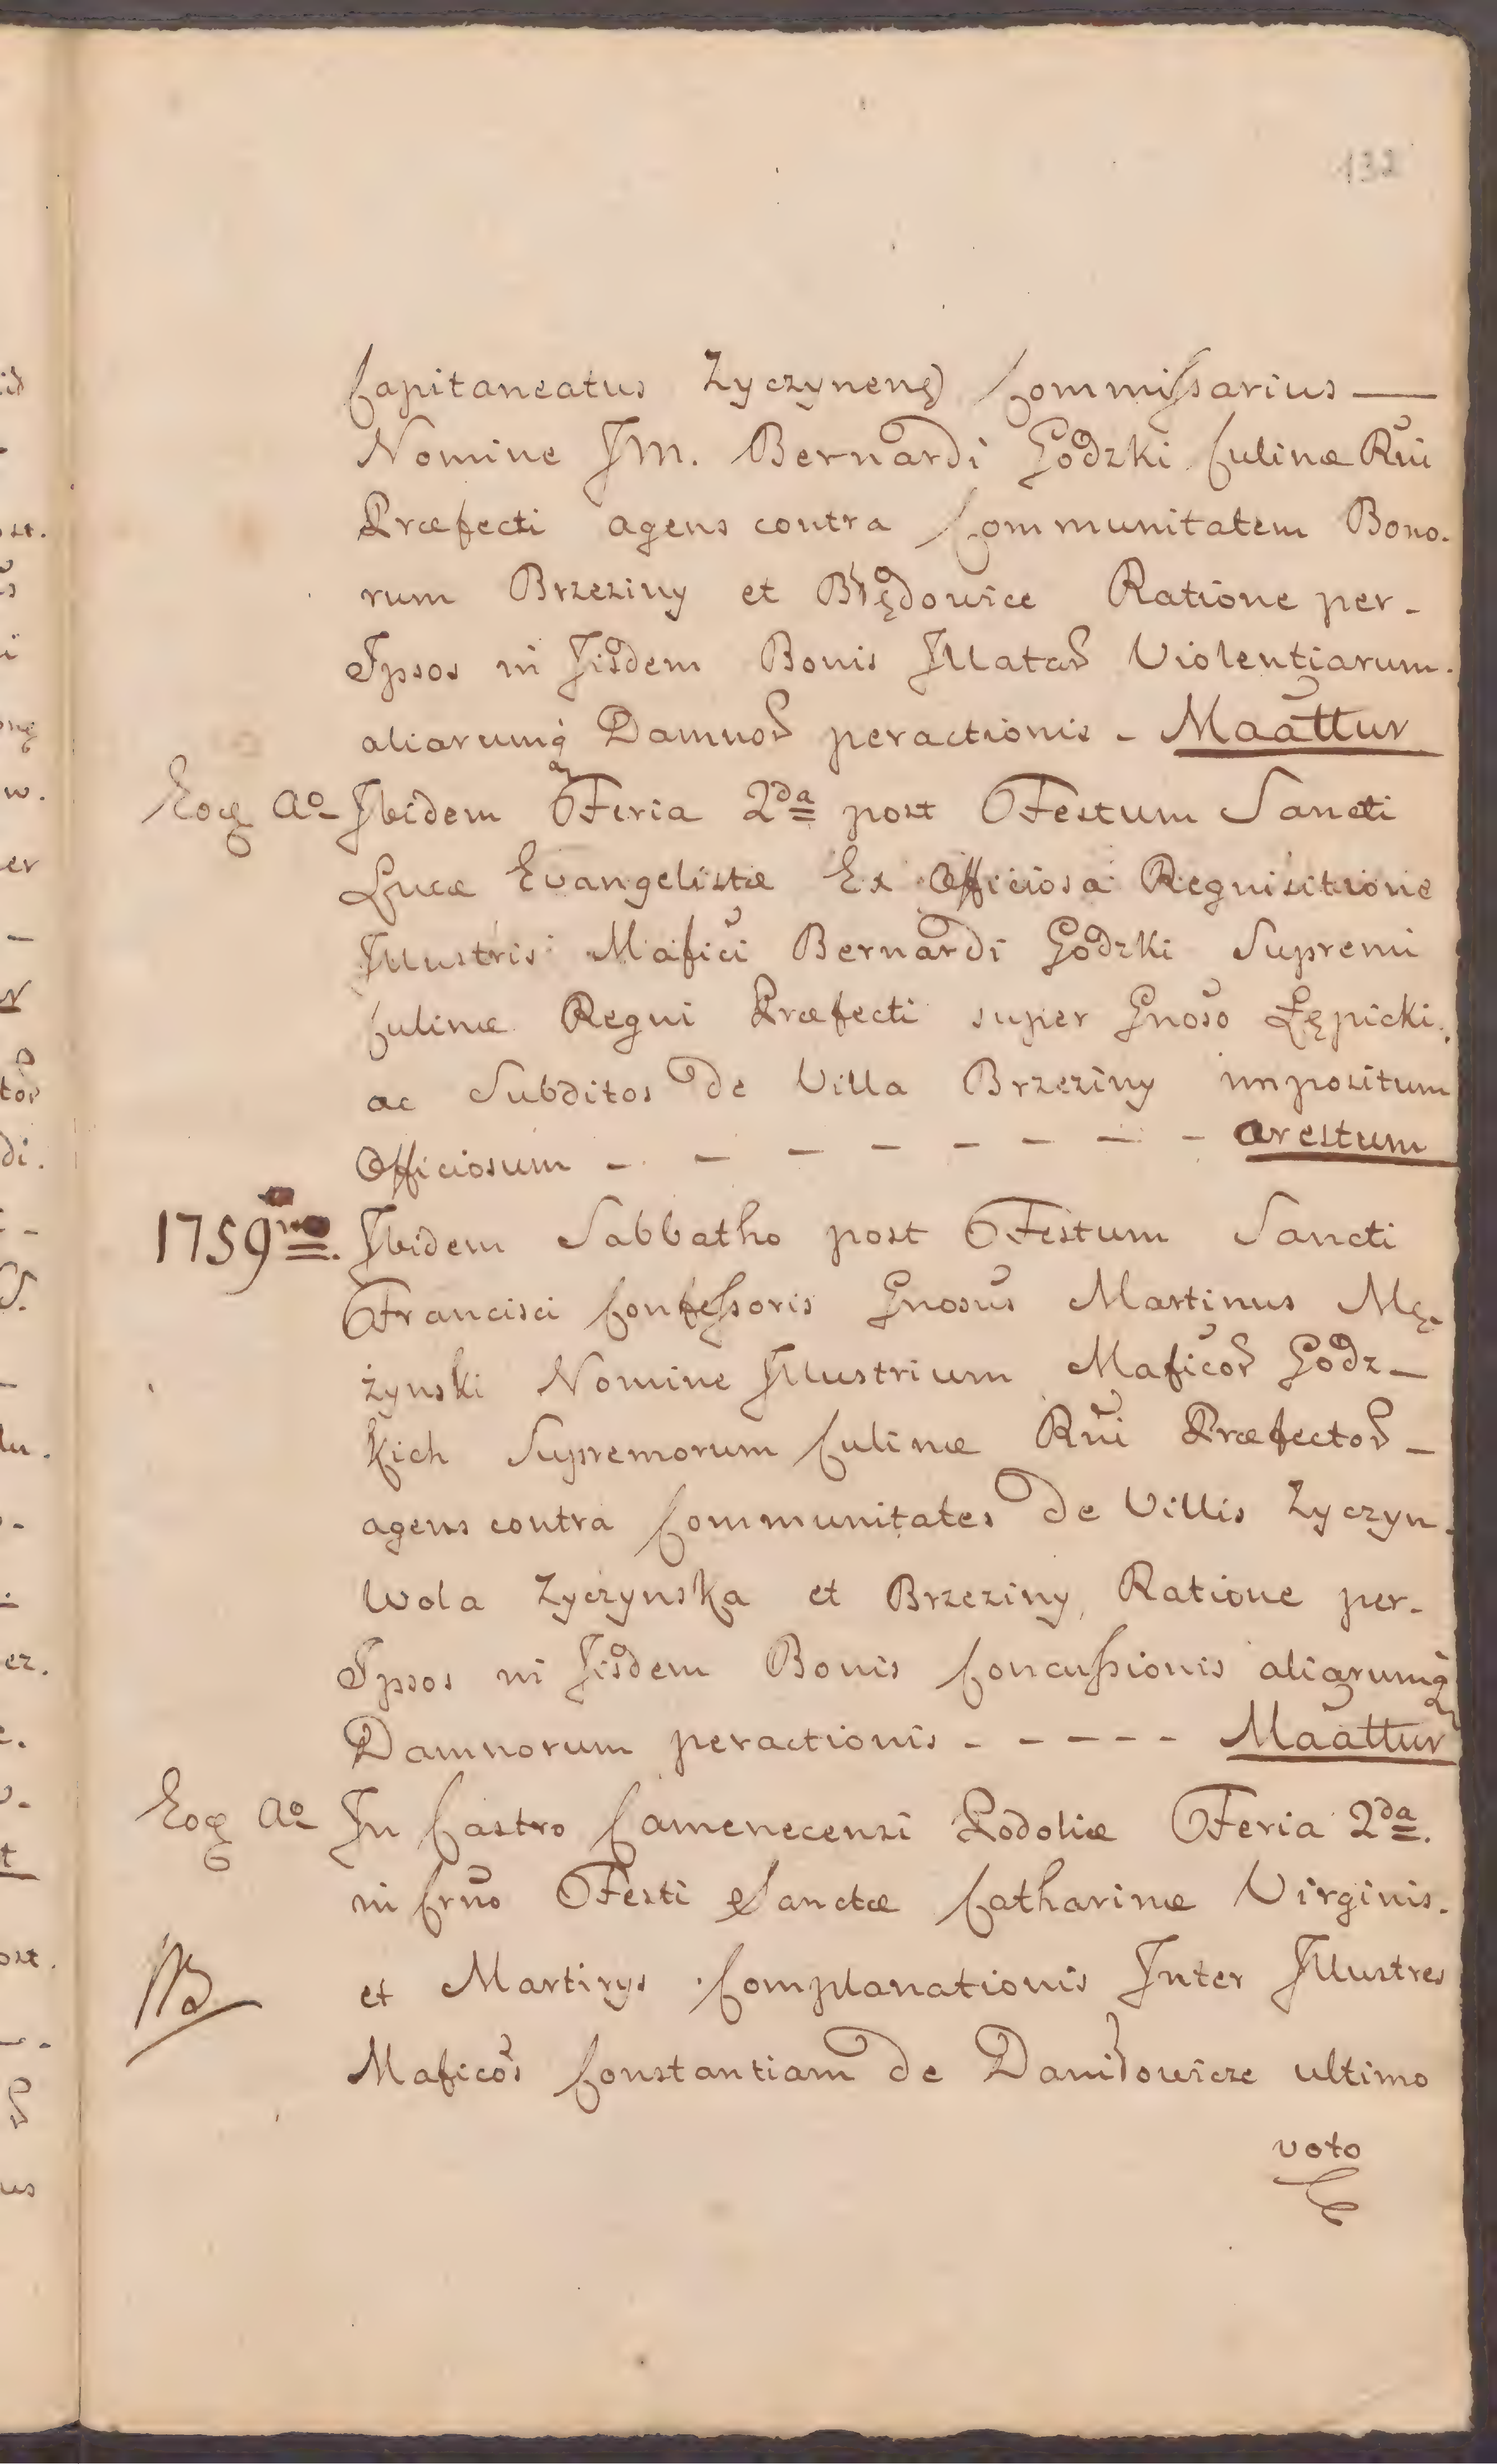 132
Capitaneatus Zyczynens) Commissarius —
Nomine JM. Bernardi Godzki Culinæ Rñi
Præfecti agens contra Communitatem Bono-
rum Brzeziny et Błędowice Ratione per-
Ipsos in Jisdem Bonis Illatar Violentiarum.
aliarumq Damnor peractionis - Maãttur
Eoq Ao Ibidem Feria 2da post Festum Sancti
Lucæ Evangelistæ Ex Officiosa Requisitione
Illustris Mafici Bernardi Godzki Supremi
Culinæ Regni Præfecti super Gnoso Łępicki.
ac Subditos de Villa Brzeziny impositum
Officiosum - - - - - - - - arestum
1759no. Ibidem Sabbatho post Festum Sancti
Francisci Confessoris Gnosus Martinus Mę-
żynski Nomine Illustrium Maficor Godz-
kich Supremorum Culinæ Rñi Præfector -
agens contra Communitates de Villis Zyczyn.
Wola Zyczynska et Brzeziny Ratione per-
Ipsos in Jisdem Bonis Concussionis aliarumq
Damnorum peractionis - - - - - Maãttur
Eoq Ao In Castro Camenecensi Podoliæ Feria 2da.
in Crño Festi Sanctæ Catharinæ Virginis.
et Martirys Complanationis Inter Illustres
NB
Maficos Constantiam de Daniłowicze ultimo
voto